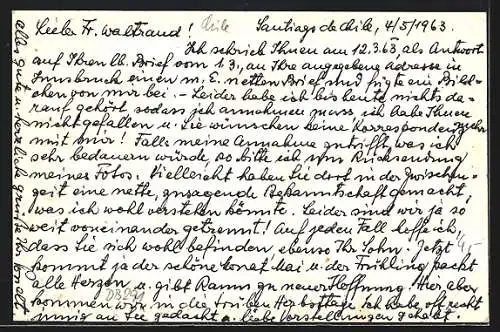 Liebe Fr. Waltraud! Chile Santiago de Chile, 4/5/1963.
Ich schrieb Ihnen am 12.3.63, als Antwort
auf Ihren lb. Brief vom 1.3, an Ihre angegebene Adresse in
Innsbruck einen m. E. netten Brief und fügte ein Bild-
chen von mir bei. - Leider habe ich bis heute nichts da-
rauf gehört, sodass ich annehmen muss ich habe Ihnen
nicht gefallen u. Sie wünschen keine Korrespondenz mehr
mit mir! Falls meine Annahme zutrifft, was ich
sehr bedauern würde, so bitte ich um Rücksendung
meines Fotos. Vielleicht haben Sie dort in der Zwischen-
zeit eine nette, zusagende Bekanntschaft gemacht,
was ich wohl verstehen könnte. Leider sind wir ja so
weit voneinander getrennt! Auf jeden Fall hoffe ich,
dass Sie sich wohl befinden, ebenso Ihr Sohn. Jetzt
kommt ja der schöne Monat Mai u. der Frühling packt
alle Herzen u. gibt Raum zu neuer Hoffnung. Hier aber
kommen wir in die trüben Herbsttage. Ich habe oft recht
innig an Sie gedacht u. liebe Vorstellungen gehabt.
alles gute u. herzliche grüsse Ihr